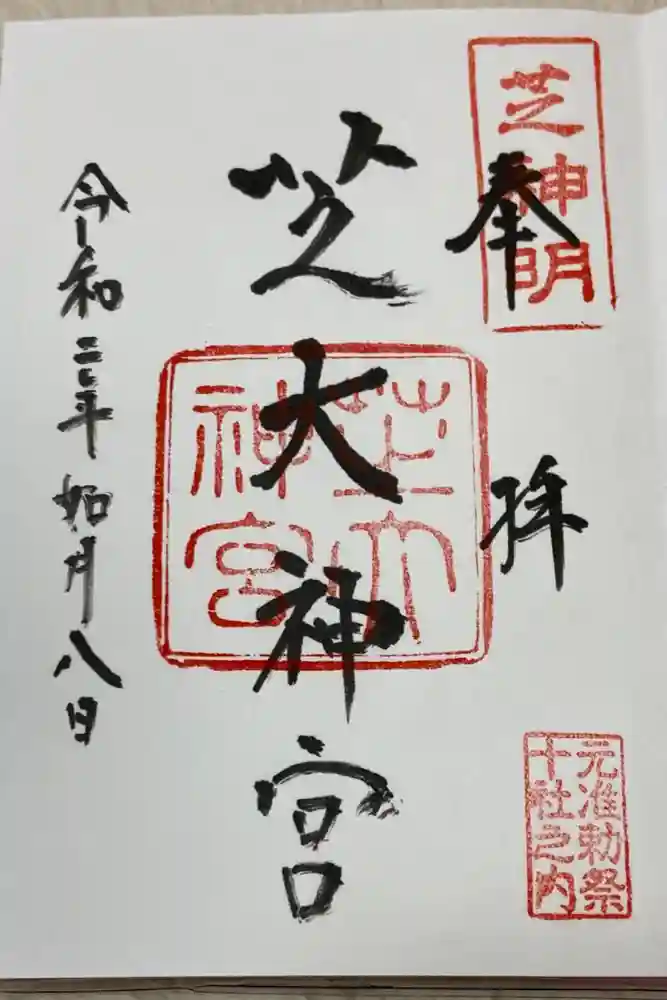 芝神明
奉拝
芝大神宮
芝大
神宮
令和二年如月八日
元准勅祭
十社之内